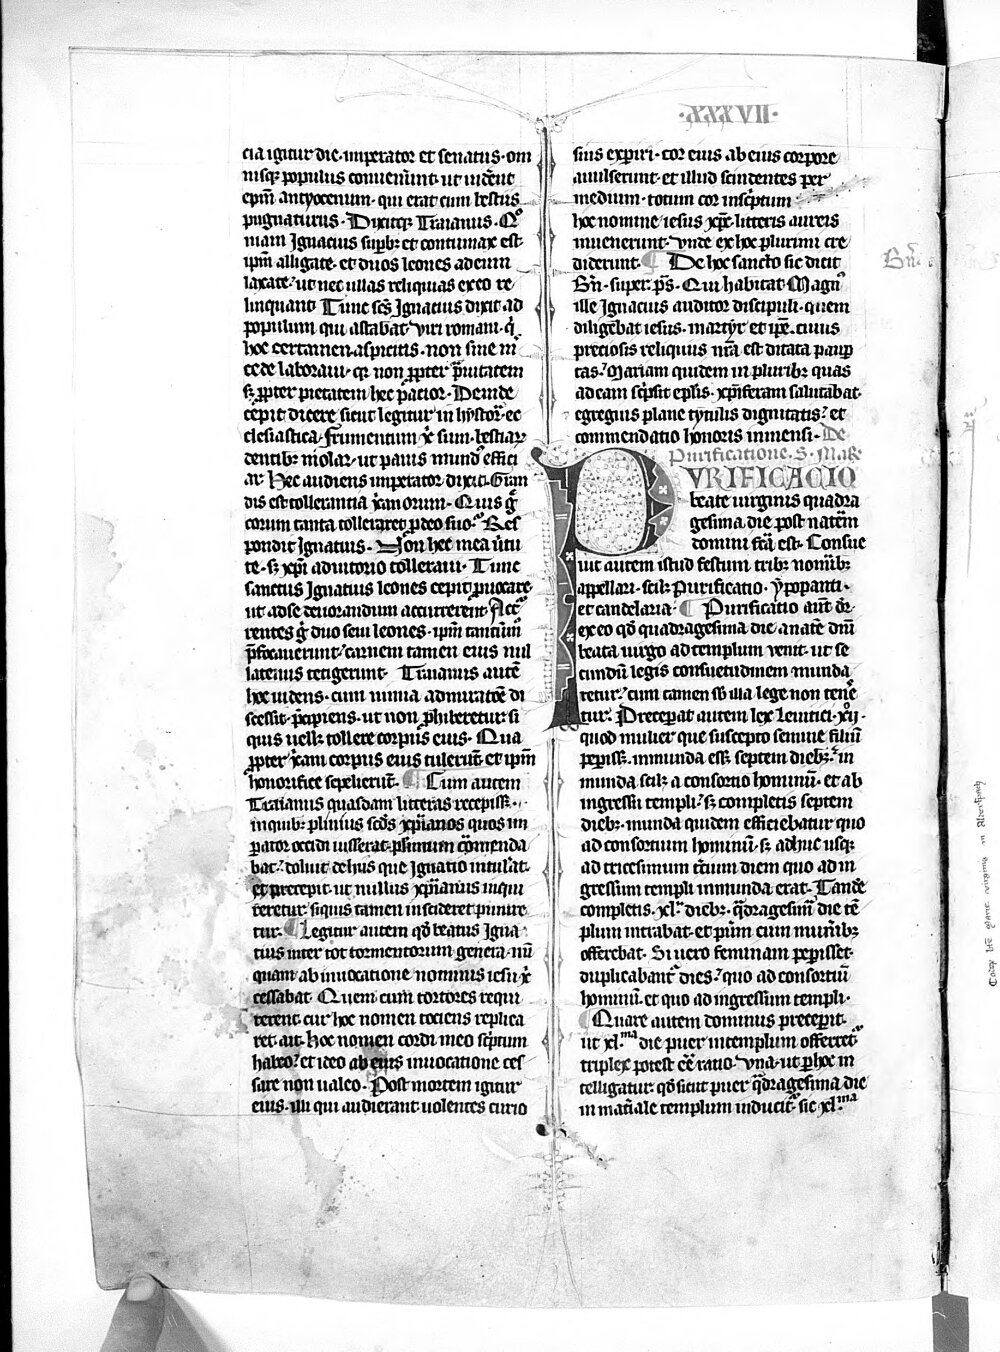 ·XXXVII·
cia igitur die· imperator et senatus· om
nisq; populus conuenerunt· ut uiderent
ep̄m antyocenum· qui erat cum bestiis
pugnaturus· Dixitq; Traianus· Qº
niam Ignacius sup̄b; et contumax est·
ip̄m alligate· et duos leones ad eum
laxate· ut nec ullas reliquias ex eo re
linquant Tunc sc̄s Ignacius dixit ad
populum qui astabat· Viri romani· q̇
hoc certamen aspicitis· non sine m̄
cede laboraui· qꝛ non ꝓpter prauitatem
sꝫ ꝓpter pietatem hec patior· Deinde
cepit dicere sicut legitur in hystor̄· ec
clesiastica· Frumentum xp̄i sum· bestiaꝝ
dentibꝫ molar· ut panis mund᷒ effici
ar· Hec audiens imperator dixit· Gran
dis est tollerantia xp̄anorum· Quis g̊
corum tanta tolleraret ꝓ deo suo· Res
pondit Ignatius· Non hec mea uirtu
te· sꝫ xp̄i adiutorio tolleraui· Tunc
sanctus Ignatius leones cepit ꝓuocare
ut ad se deuorandum accurrerent· Accur
rentes g̊ duo seui leones· ip̄m tantum
p̄focauerunt· carnem tamen eius nul
latenus tetigerunt· Traianus autē
hoc uidens· cum nimia admiratōe di
scessit· p̄cipiens· ut non ꝓhiberetur· si
quis uellꝫ tollere corpus eius· Qua
ꝓpter xp̄iani corpus eius tulerunt· et ip̄m
honorifice sepelierunt· Cum autem
Traianus quasdam litteras recepissꝫ·
in quibꝫ plinius sc̄ds xp̄ianos quos im
ꝑator occidi iusserat· plurimum cōmenda
bat· doluit de hiis que Ignatio intulat·
et precepit· ut nullus xp̄ianus inqui
reretur· siquis tamen incideret punire
tur· Legitur autem qd̄ beatus Igna
tius inter tot tormentorum genera· nū
quam ab inuocatione nominis iesu xp̄i
cessabat· Quem cum tortores requi
rerent· cur hoc nomen tociens replica
ret· ait· Hoc nomen cordi meo sc̄ptum
habeo· et ideo ab eius inuocatione ces
sare non ualeo· Post mortem igitur
eius· illi qui audierant uolentes curio
sius expiri· cor eius ab eius corpore
auulserunt· et illud scindentes per
medium· totum cor insc̄ptum
hoc nomine iesus xp̄c· litteris aureis
inuenerunt· Vnde ex hoc plurimi cre
diderunt· De hoc sancto sic dicit
Br̄n· super p̄s· Qui habitat· Magn᷒
ille Ignacius auditor discipuli· quem
diligebat iesus· martyr et ip̄e· cuius
preciosis reliquiis nr̄a est ditata pauꝑ
tas· Mariam quidem in pluribꝫ quas
ad eam sc̄psit ep̄lis· xp̄iferam salutabat·
egregius plane tytulus dignitatis· et
commendatio honoris inmensi· De
Purificatione· S· Mar·
PURIFICACIO
beate uirginis quadra
gesima die post natem̄
domini fc̄a est· Consue
uit autem istud festum tribꝫ nomibꝫ
appellari· scilꝫ Purificatio· ypopanti·
et candelaria· Purificatio aut̄ dr̄·
ex eo qd̄ quadragesima die a natē dn̄i
beata uirgo ad templum uenit· ut se
cundū legis consuetudinem munda
retur· cum tamen sb̄ illa lege non tene
tur· Preceperat autem lex Leuitici· xij·
quod mulier que suscepto semine filium
peperissꝫ· inmunda essꝫ septem diebꝫ· in
munda scilꝫ a consortio hominū· et ab
ingressu templi· sꝫ completis septem
diebꝫ· munda quidem efficiebatur quo
ad consortium hominū· sꝫ adhuc usq;
ad tricesimum tc̄ium diem quo ad in
gressum templi inmunda erat· Tande
completis· xl· diebꝫ· q̄dragesim̄ die tē
plum intrabat· et puerum cum muneribꝫ
offerebat· Si uero feminam peperissꝫ·
duplicabant᷒ dies· quo ad consortiū
hominū· et quo ad ingressum templi·
Quare autem dominus precepit·
ut xl·ma die puer in templum offerret᷒
triplex potest ee̅ ratio· Vna· ut ꝑ hoc in
telligatur· qd̄ sicut puer q̄dragesima die
in mat̄iale templum inducit᷒· sic xl·ma
Br̄n·